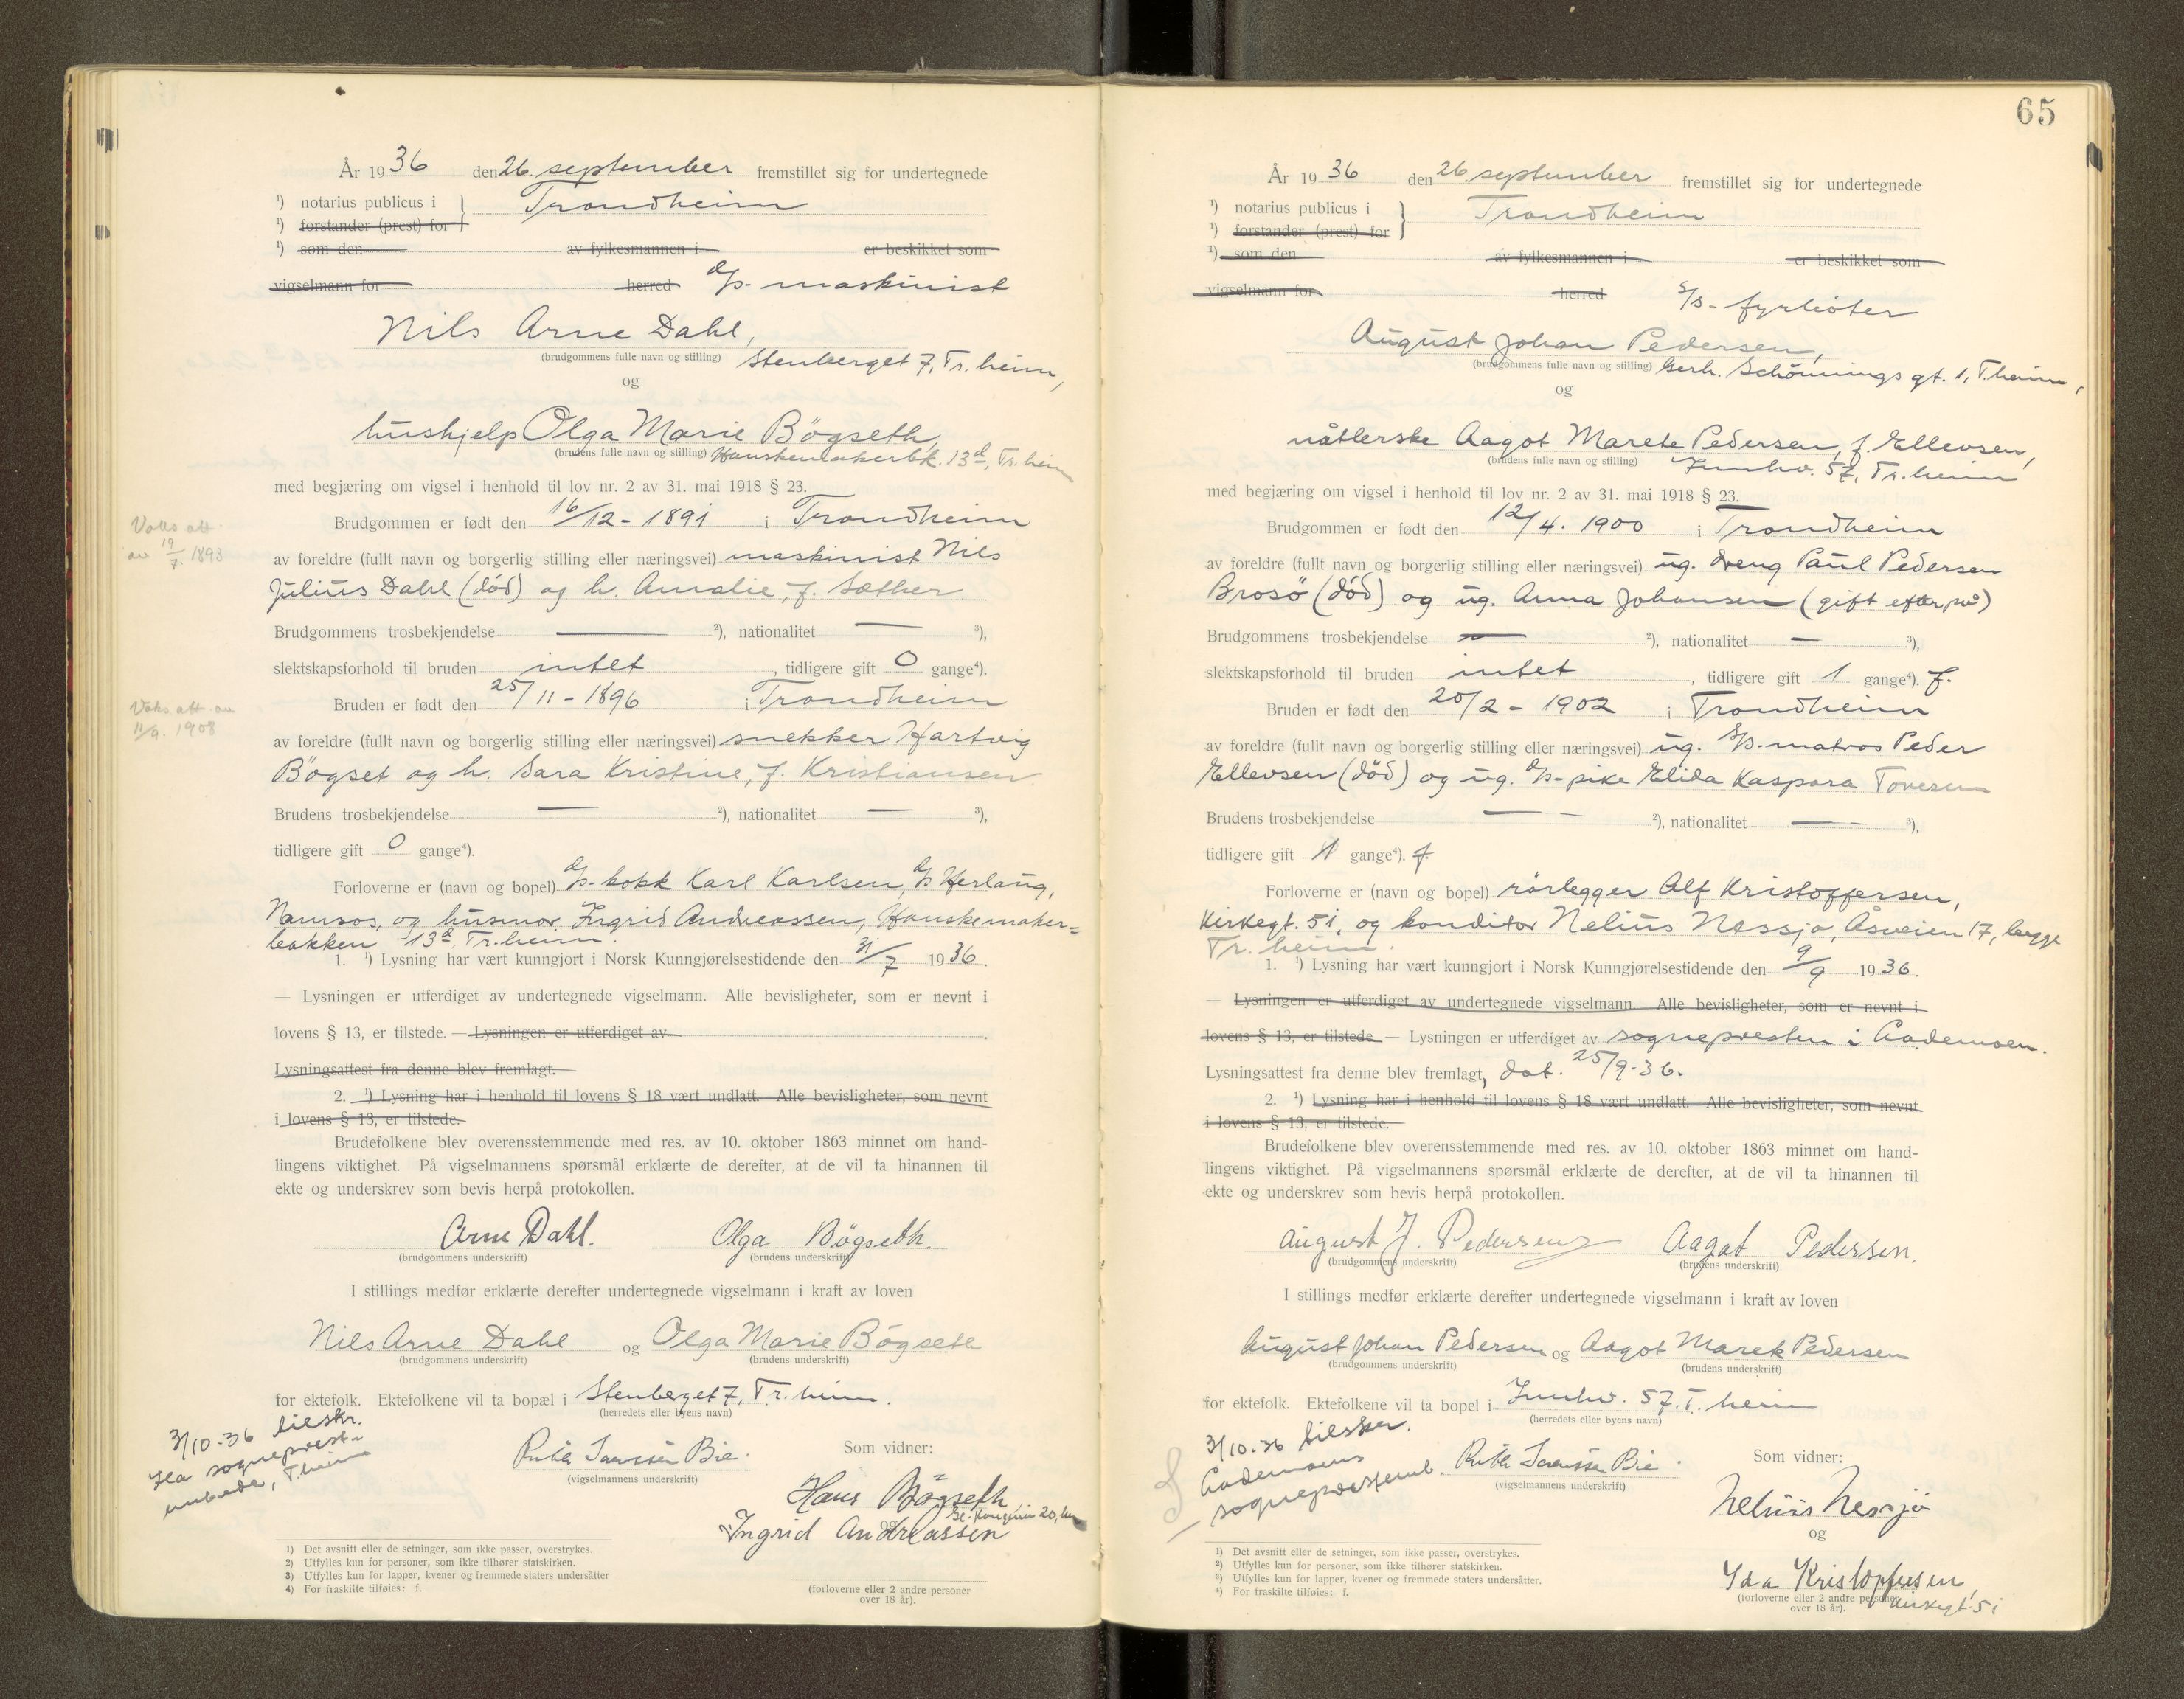 År 1936 den 26. september fremstillet sig for undertegnede
¹) notarius publicus i } Trondheim
¹) forstander (prest) for
¹) som den av fylkesmannen i er beskikket som
vigselmann for herred d/s- maskinist
Nils Arne Dahl,
(brudgommens fulle navn og stilling) Stenberget 7, Tr.heim,
og
hushjelp Olga Marie Bögseth,
(brudens fulle navn og stilling) Hanskemakerbk. 13d, Tr.heim
med begjæring om vigsel i henhold til lov nr. 2 av 31. mai 1918 § 23.
Vaks att.
av 19/7. 1893
Brudgommen er født den 16/12 - 1891 i Trondheim
av foreldre (fullt navn og borgerlig stilling eller næringsvei) maskinist Nils
Julius Dahl (död) og h. Amalie, f. Sæther
Brudgommens trosbekjendelse — ²), nationalitet — ³),
slektskapsforhold til bruden intet, tidligere gift 0 gange⁴).
Vaks att av
11/9. 1908
Bruden er født den 25/11 - 1896 i Trondheim
av foreldre (fullt navn og borgerlig stilling eller næringsvei) snekker Hartvig
Bögset og h. Sara Kristine, f. Kristiansen
Brudens trosbekjendelse — ²), nationalitet — ³),
tidligere gift 0 gange⁴).
Forloverne er (navn og bopel) d/s-kokk Karl Karlsen, d/s Herlaug,
Namsos, og husmor Ingrid Andreassen, Hanskemaker=
bakken 13d, Tr.heim.
1. ¹) Lysning har vært kunngjort i Norsk Kunngjørelsestidende den 31/7 1936.
— Lysningen er utferdiget av undertegnede vigselmann. Alle bevisligheter, som er nevnt i
lovens § 13, er tilstede. — Lysningen er utferdiget av
Lysningsattest fra denne blev fremlagt.
2. ¹) Lysning har i henhold til lovens § 18 vært undlatt. Alle bevisligheter, som nevnt
i lovens § 13, er tilstede.
Brudefolkene blev overensstemmende med res. av 10. oktober 1863 minnet om hand-
lingens viktighet. På vigselmannens spørsmål erklærte de derefter, at de vil ta hinannen til
ekte og underskrev som bevis herpå protokollen.
Arne Dahl. Olga Bögseth.
(brudgommens underskrift) (brudens underskrift)
I stillings medfør erklærte derefter undertegnede vigselmann i kraft av loven
Nils Arne Dahl og Olga Marie Bögseth
(brudgommens underskrift) (brudens underskrift)
for ektefolk. Ektefolkene vil ta bopæl i Stenberget 7, Tr.heim.
(herredets eller byens navn)
3/10-36 tilskr.
Ila sogneprest-
embede, T.heim
Ruth Sørenssen Bie.
(vigselmannens underskrift)
Som vidner:
Hans Bögseth
og
Ingrid Andreassen
1) Det avsnitt eller de setninger, som ikke passer, overstrykes.
2) Utfylles kun for personer, som ikke tilhører statskirken.
3) Utfylles kun for lapper, kvener og fremmede staters undersåtter
4) For fraskilte tilføies: f.
(forloverne eller 2 andre personer
over 18 år).
65
År 1936 den 26. september fremstillet sig for undertegnede
¹) notarius publicus i } Trondheim
¹) forstander (prest) for
¹) som den av fylkesmannen i er beskikket som
vigselmann for herred s/s- fyrböter
August Johan Pedersen,
(brudgommens fulle navn og stilling) Gerh. Schönnings gt. 1, T.heim,
og
nåtlerske Aagot Marete Pedersen, f. Ellevsen,
(brudens fulle navn og stilling) Innhv. 57, Tr.heim
med begjæring om vigsel i henhold til lov nr. 2 av 31. mai 1918 § 23.
Brudgommen er født den 12/4. 1900 i Trondheim
av foreldre (fullt navn og borgerlig stilling eller næringsvei) ug. dreng Paul Pedersen
Brosö (död) og ug. Anna Johansen (gift efterpå)
Brudgommens trosbekjendelse — ²), nationalitet — ³),
slektskapsforhold til bruden intet, tidligere gift 1 gange⁴). f.
Bruden er født den 20/2 - 1902 i Trondheim
av foreldre (fullt navn og borgerlig stilling eller næringsvei) ug. d/s-matros Peder
Ellevsen (död) og ug. d/s-pike Elida Kaspara Tovesen
Brudens trosbekjendelse — ²), nationalitet — ³),
tidligere gift 1 gange⁴). f.
Forloverne er (navn og bopel) rörlegger Alf Kristoffersen,
Kirkegt. 5i, og konditor Nelius Nessjö, Åsveien 17, begge
Tr.heim.
1. ¹) Lysning har vært kunngjort i Norsk Kunngjørelsestidende den 9/9 1936.
— Lysningen er utferdiget av undertegnede vigselmann. Alle bevisligheter, som er nevnt i
lovens § 13, er tilstede — Lysningen er utferdiget av sognepresten i Bademoen.
Lysningsattest fra denne blev fremlagt, dat. 25/9-36.
2. ¹) Lysning har i henhold til lovens § 18 vært undlatt. Alle bevisligheter, som nevnt
i lovens § 13, er tilstede.
Brudefolkene blev overensstemmende med res. av 10. oktober 1863 minnet om hand-
lingens viktighet. På vigselmannens spørsmål erklærte de derefter, at de vil ta hinannen til
ekte og underskrev som bevis herpå protokollen.
August J. Pedersen Aagot Pedersen.
(brudgommens underskrift) (brudens underskrift)
I stillings medfør erklærte derefter undertegnede vigselmann i kraft av loven
August Johan Pedersen og Aagot Marete Pedersen
(brudgommens underskrift) (brudens underskrift)
for ektefolk. Ektefolkene vil ta bopel i Innhv. 57. T.heim
(herredets eller byens navn)
3/10-36 tilskr.
Bademoens
sogneprestemb.
Ruth Sørenssen Bie.
(vigselmannens underskrift)
Som vidner:
Nelius Nessjö
og
Ida Kristoffersen,
Kirkegt 5i
(forloverne eller 2 andre personer
over 18 år).
1) Det avsnitt eller de setninger, som ikke passer, overstrykes.
2) Utfylles kun for personer, som ikke tilhører statskirken.
3) Utfylles kun for lapper, kvener og fremmede staters undersåtter.
4) For fraskilte tilføies: f.